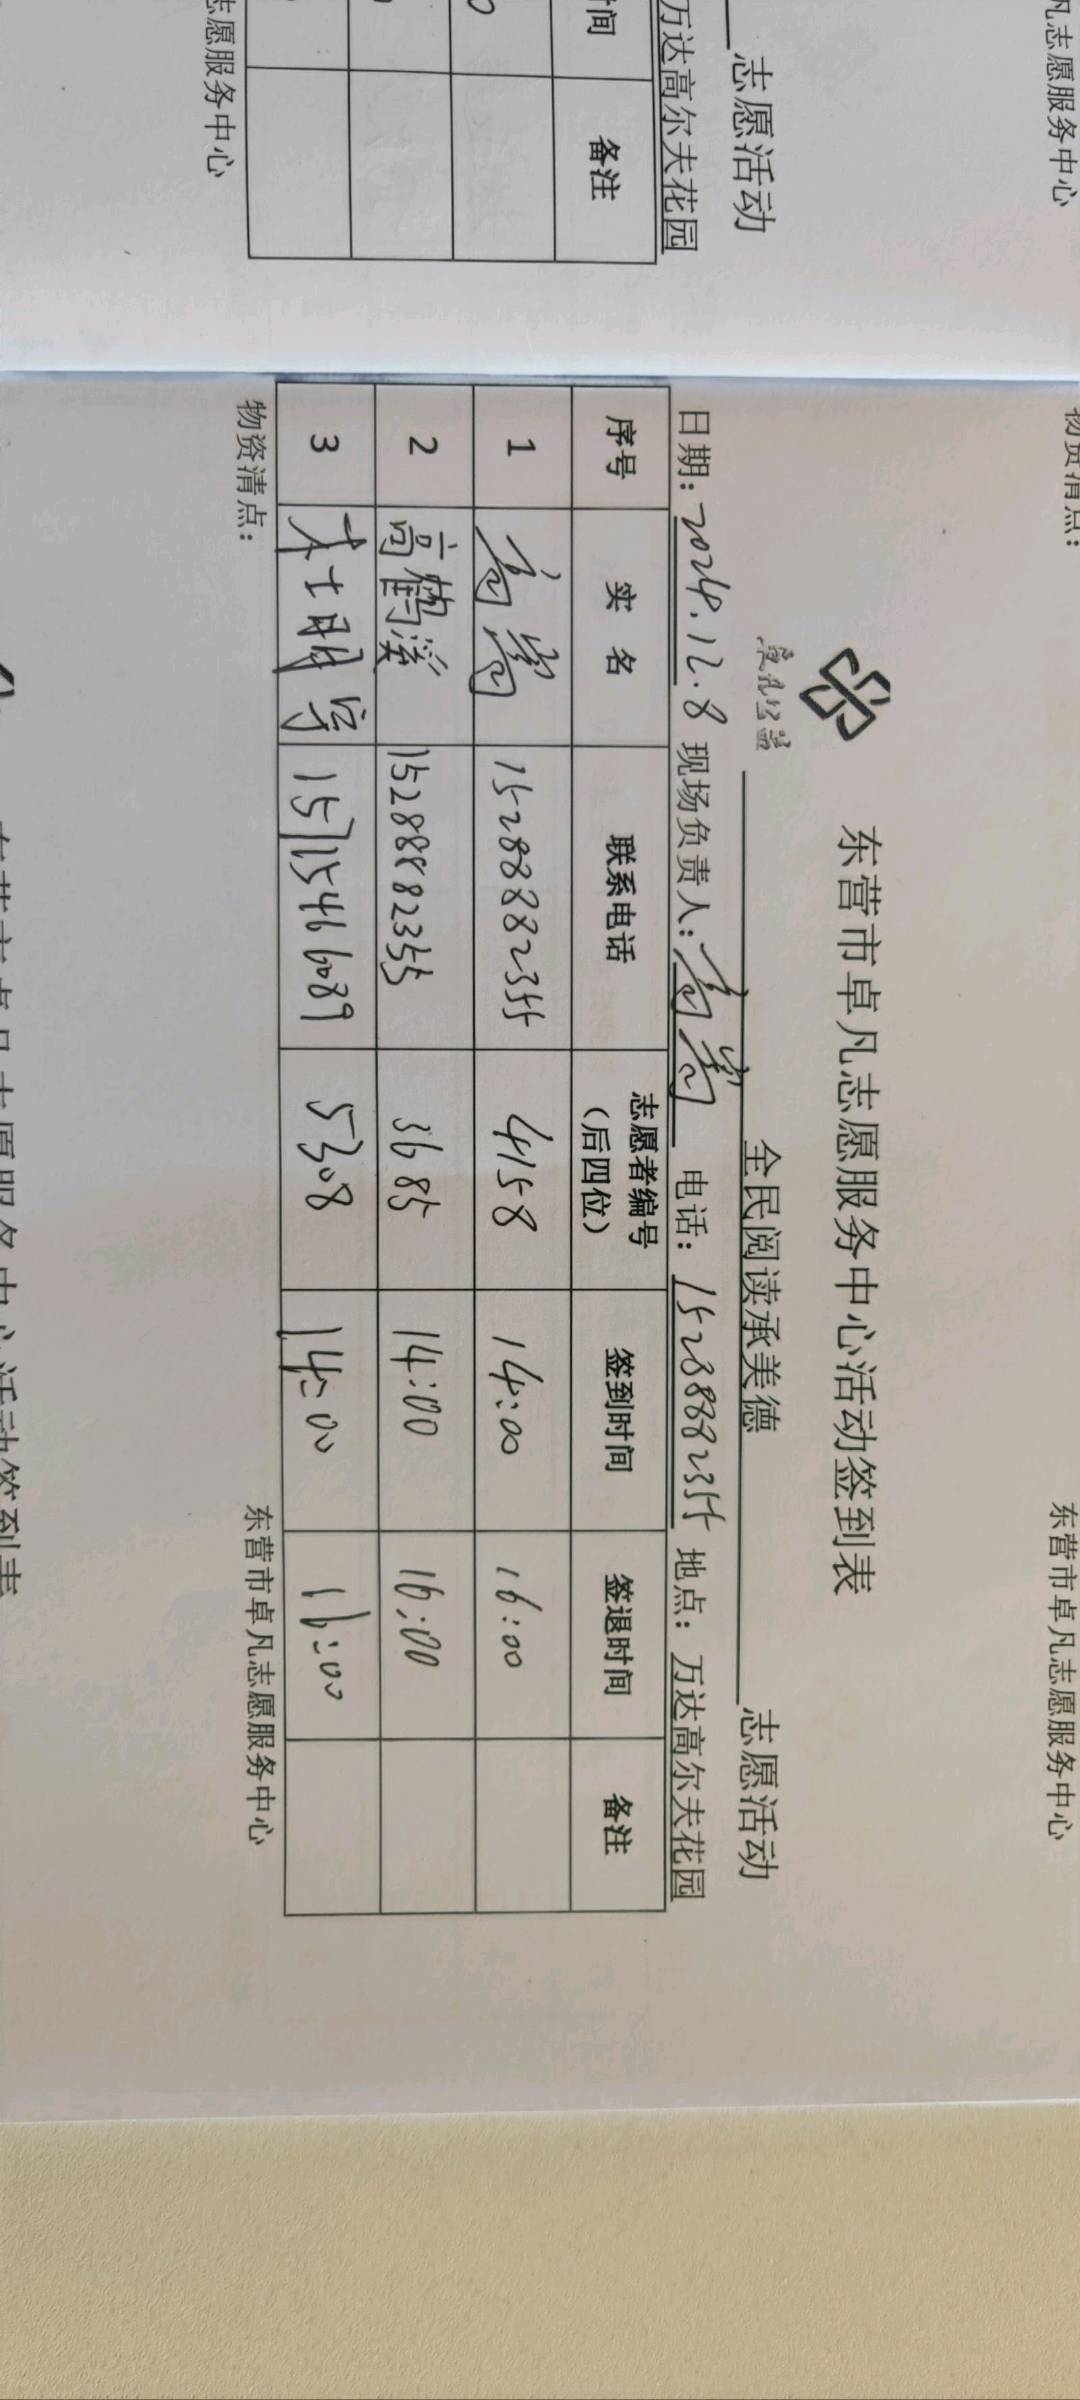 东营市卓凡志愿服务中心活动签到表
全民阅读承美德 志愿活动
日期：2024.12.8 现场负责人： 电话：15288882355 地点：万达高尔夫花园
序号 实名 联系电话 志愿者编号（后四位） 签到时间 签退时间 备注
1 15288882355 4158 14:00 16:00
2 高鹤溪 15288882355 3685 14:00 16:00
3 15715466089 5308 14:00 16:00
物资清点： 东营市卓凡志愿服务中心
志愿活动
万达高尔夫花园
时间 备注
志愿服务中心
凡志愿服务中心
物资清点： 东营市卓凡志愿服务中心
东营市卓凡志愿服务中心活动签到表